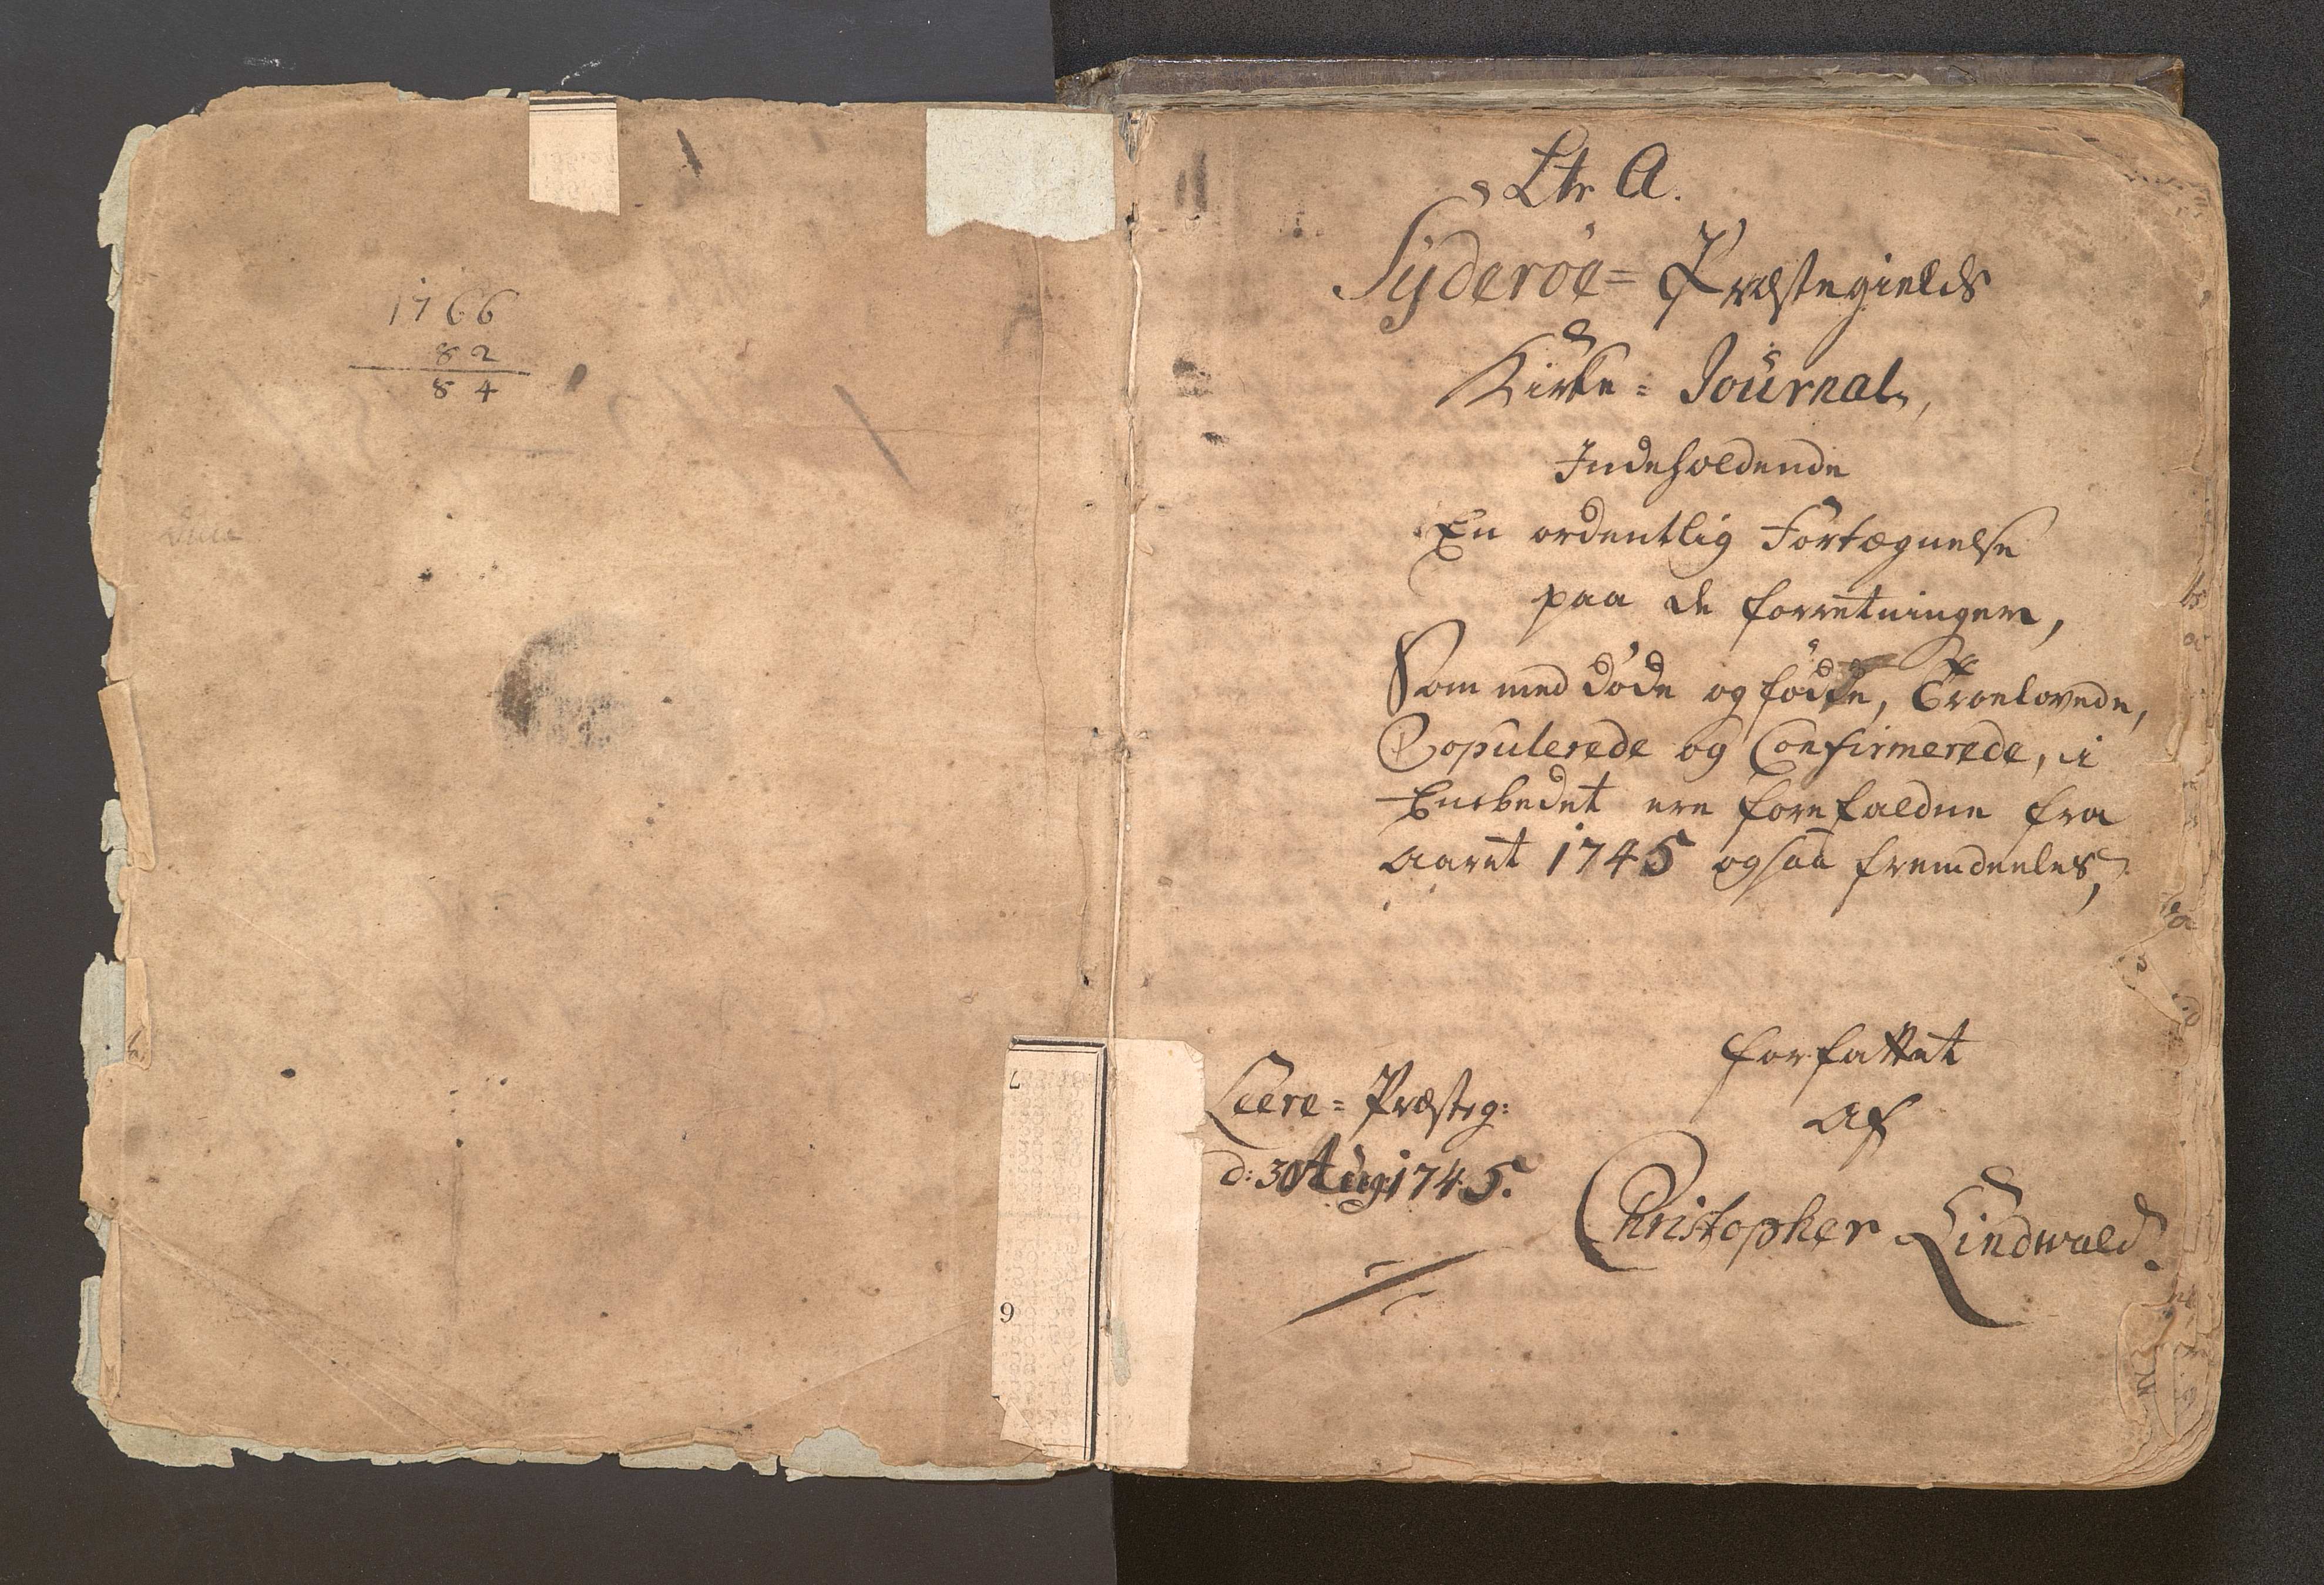 1766
82
84
Ltr A.
Syderöe= Præstegields
Kirke= Journal,
Indeholdende
En ordentlig Fortegnelse
paa de forretninger,
Som med döde og födde, Troelovede,
Copulerede og Confirmerede, i
Embedet ere forefaldne fra
Aaret 1745 ogsaa fremdeeles,
forfattet
af
Christopher Lindwald.
Præsteg:
d: 30 Aug: 1745.
7
6